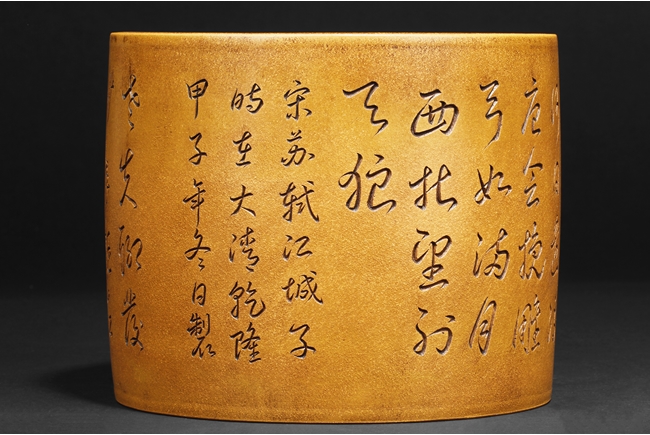 唐会挽雕
弓如满月
西北望射
天狼
宋苏轼江城子
時在大清乾隆
甲子年冬日製
老夫聊發